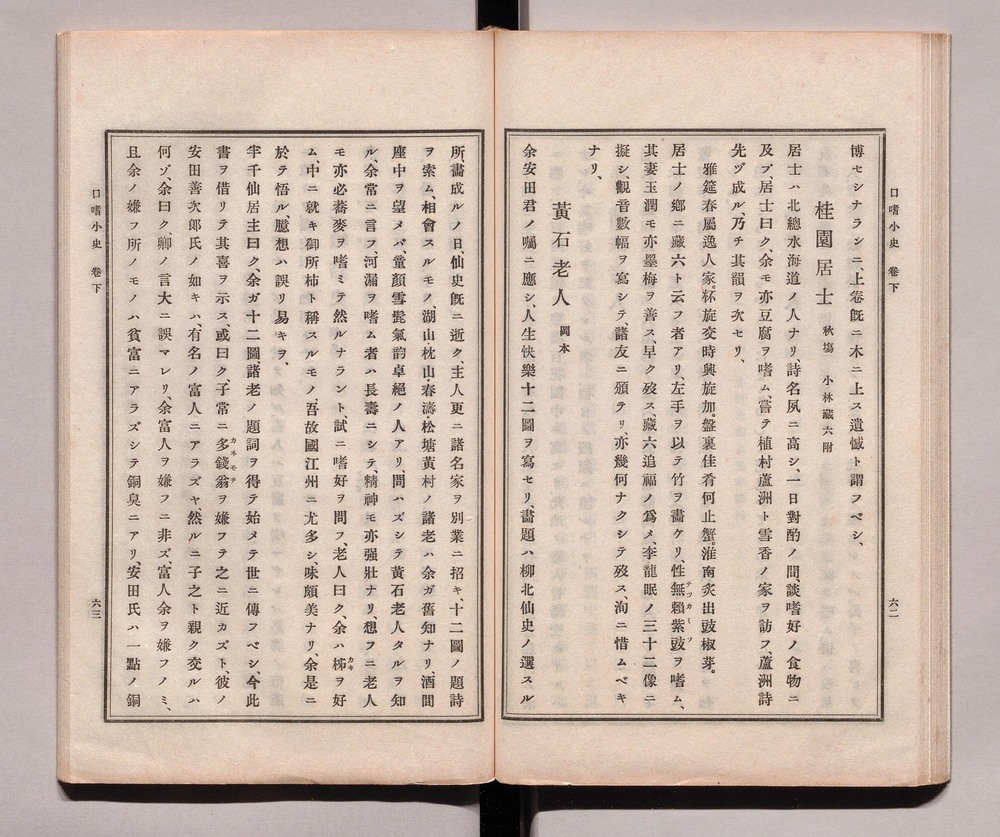 口嗜小史 卷下
六二
博セシナランニ、上卷既ニ木ニ上ス遺憾ト謂フベシ、
桂園居士 秋塲 小林藏六附
居士ハ北總水海道ノ人ナリ、詩名夙ニ高シ、一日對酌ノ間、談嗜好ノ食物ニ
及ブ、居士曰ク、余モ亦豆腐ヲ嗜ム、嘗テ植村蘆洲ト雪香ノ家ヲ訪フ、蘆洲詩
先ヅ成ル、乃チ其韻ヲ次セリ、
雅筵春屬逸人家。杯旋交時興旋加。盤裏佳肴何止蟹。淮南炙出豉椒芽。
居士ノ鄉ニ藏六ト云フ者アリ、左手ヲ以テ竹ヲ畵ケリ、性無賴紫豉ヲ嗜ム、
其妻玉潤モ亦墨梅ヲ善ス、早ク歿ス、藏六追福ノ爲メ、李龍眠ノ三十二像ニ
擬シ、觀音數幅ヲ寫シテ諸友ニ頒テリ、亦幾何ナクシテ歿ス、洵ニ惜ムベキ
ナリ、
黃石老人 岡本
余安田君ノ囑ニ應シ、人生快樂十二圖ヲ寫セリ、畵題ハ柳北仙史ノ選スル
所、畵成ルノ日、仙史既ニ逝ク、主人更ニ諸名家ヲ別業ニ招キ、十二圖ノ題詩
ヲ索ム、相會スルモノ、湖山枕山春濤松塘黃村ノ諸老ハ余ガ舊知ナリ、酒間
座中ヲ望メバ、童顏雪髭氣韵卓絕ノ人アリ、問ハズシテ黃石老人タルヲ知
ル、余常ニ言フ、河漏ヲ嗜ム者ハ長壽ニシテ、精神モ亦强壯ナリ、想フニ老人
モ亦必蕎麥ヲ嗜ミテ然ルナラント、試ニ嗜好ヲ問フ、老人曰ク、余ハ柹ヲ好
ム、中ニ就キ御所柿ト稱スルモノ、吾故國江州ニ尤多シ、味頗美ナリ、余是ニ
於テ悟ル、臆想ハ誤リ易キヲ、
半千仙居主曰ク、余ガ十二圖諸老ノ題詞ヲ得テ始メテ世ニ傳フベシ、今此
書ヲ借リテ其喜ヲ示ス、或曰ク、子常ニ多錢翁ヲ嫌フテ之ニ近カズト、彼ノ
安田善次郞氏ノ如キハ、有名ノ富人ニアラズヤ、然ルニ子之ト親ク交ルハ
何ゾ、余曰ク、卿ノ言大ニ誤マレリ、余富人ヲ嫌フニ非ズ、富人余ヲ嫌フノミ、
且余ノ嫌フ所ノモノハ貧富ニアラズシテ銅臭ニアリ、安田氏ハ一點ノ銅
口嗜小史 卷下
六三